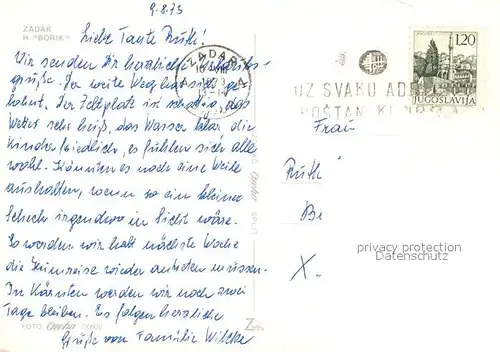 9.8.73
ZADAR
H. "BORIK"
Liebe Tante Ruth!
Wir senden Dir herzliche Urlaubs-
grüße. Der weite Weg hat sich ge-
lohnt. Der Zeltplatz ist schattig, das
Wetter sehr heiß, das Wasser klar, die
Kinder friedlich, es fühlen sich alle
wohl. Könnten es noch eine Weile
aushalten, wenn so ein kleiner
Scheck irgendwo in Sicht wäre.
So werden wir halt nächste Woche
die Heimreise wieder antreten müssen.
In Kärnten werden wir noch zwei
Tage bleiben. Es folgen herzliche
Grüße von Familie
ZADAR
1.20
JUGOSLAVIJA
UZ SVAKU
Frau
Ruth
X.
privacy protection
Datenschutz
SPLIT
FOTO